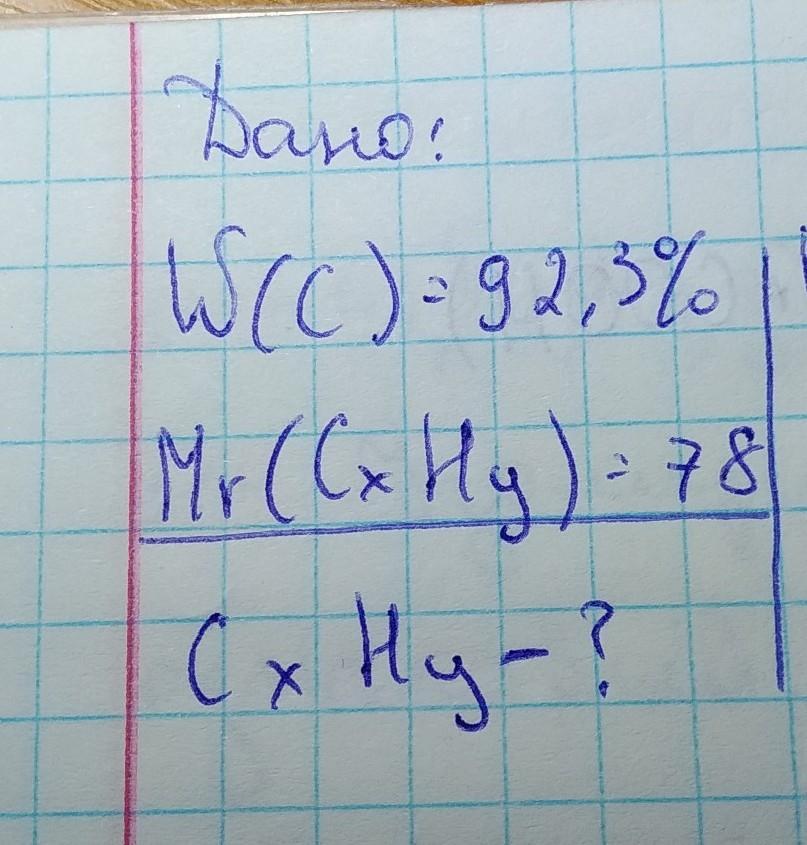 Дано:
W(C) = 92,3%
Mr(CxHy) = 78
CxHy - ?